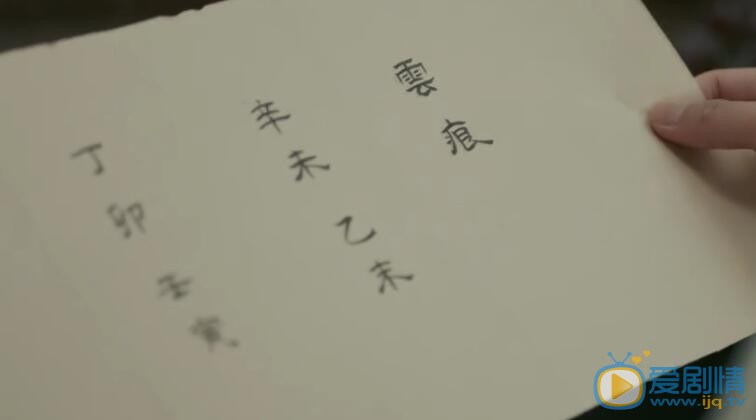 雲痕
辛未乙末
丁卯壬寅
爱剧情
www.ijq.tv